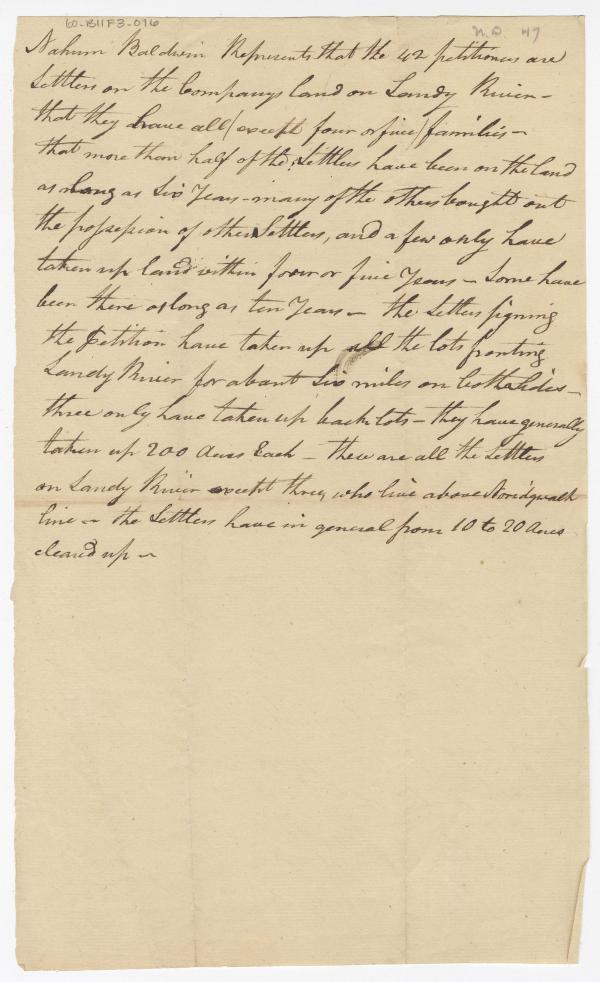 60-B11F3-016
N.D. 47
Nahum Baldwin Represents that the 42 petitioners are
Settlers on the Companys land on Sandy River—
that they have all (except four or five) families—
that more than half of the Settlers have been on the land
as long as Six Years—many of the others bought out
the possession of other Settlers, and a few only have
taken up land within four or five Years— Some have
been there as long as ten Years— the Settlers signing
the Petition have taken up all the lots fronting
Sandy River for about Six miles on both sides—
three only have taken up back lots— they have generally
taken up 200 Acres Each— these are all the Settlers
on Sandy River except three, who live above Noridgwalk
line— the Settlers have in general from 10 to 20 Acres
cleared up—